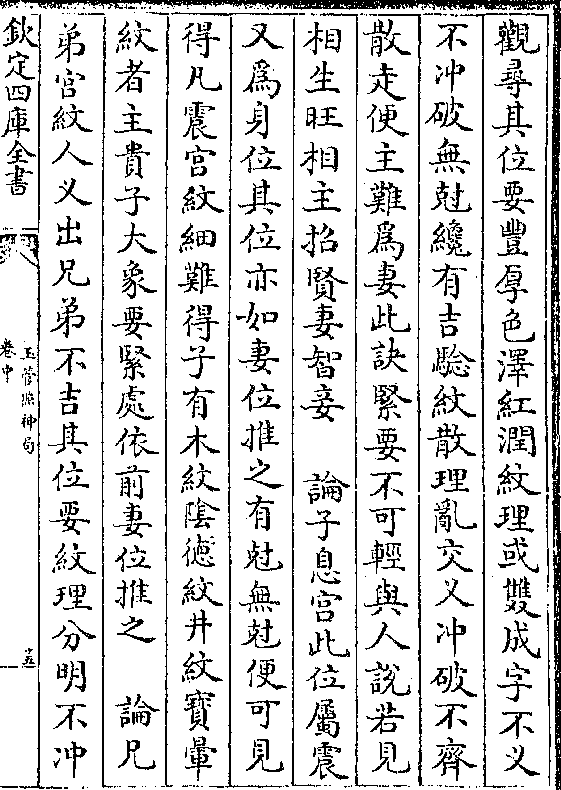 觀尋其位要豐厚色澤紅潤紋理或雙成字不义
不冲破無尅纔有吉騐紋散理亂交义冲破不齊
散走便主難爲妻此訣緊要不可輕與人說若見
相生旺相主招賢妻智妾　論子息宮此位屬震
又爲身位其位亦如妻位推之有尅無尅便可見
得凡震宮紋細難得子有木紋陰徳紋井紋寳暈
紋者主貴子大象要緊處依前妻位推之　論兄
弟宮紋人义出兄弟不吉其位要紋理分明不冲
欽定四庫全書
玉管照神局
卷中
十五